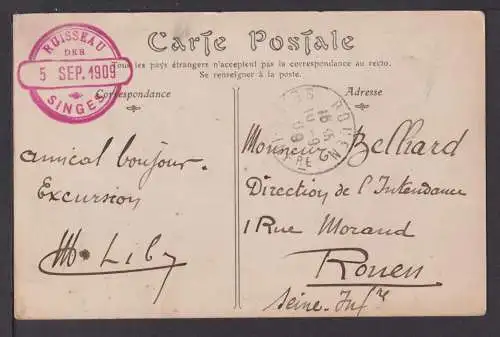 RUISSEAU
DES
5 SEP. 1909
SINGES
Carte Postale
Tous les pays étrangers n'acceptent pas la correspondance au recto.
Se renseigner à la poste.
Correspondance
Adresse
ROUEN
amical bonjour.
Excursion
Monsieur Belhard
Direction de l'Intendance
1 Rue Morand
Rouen
Seine-Infre